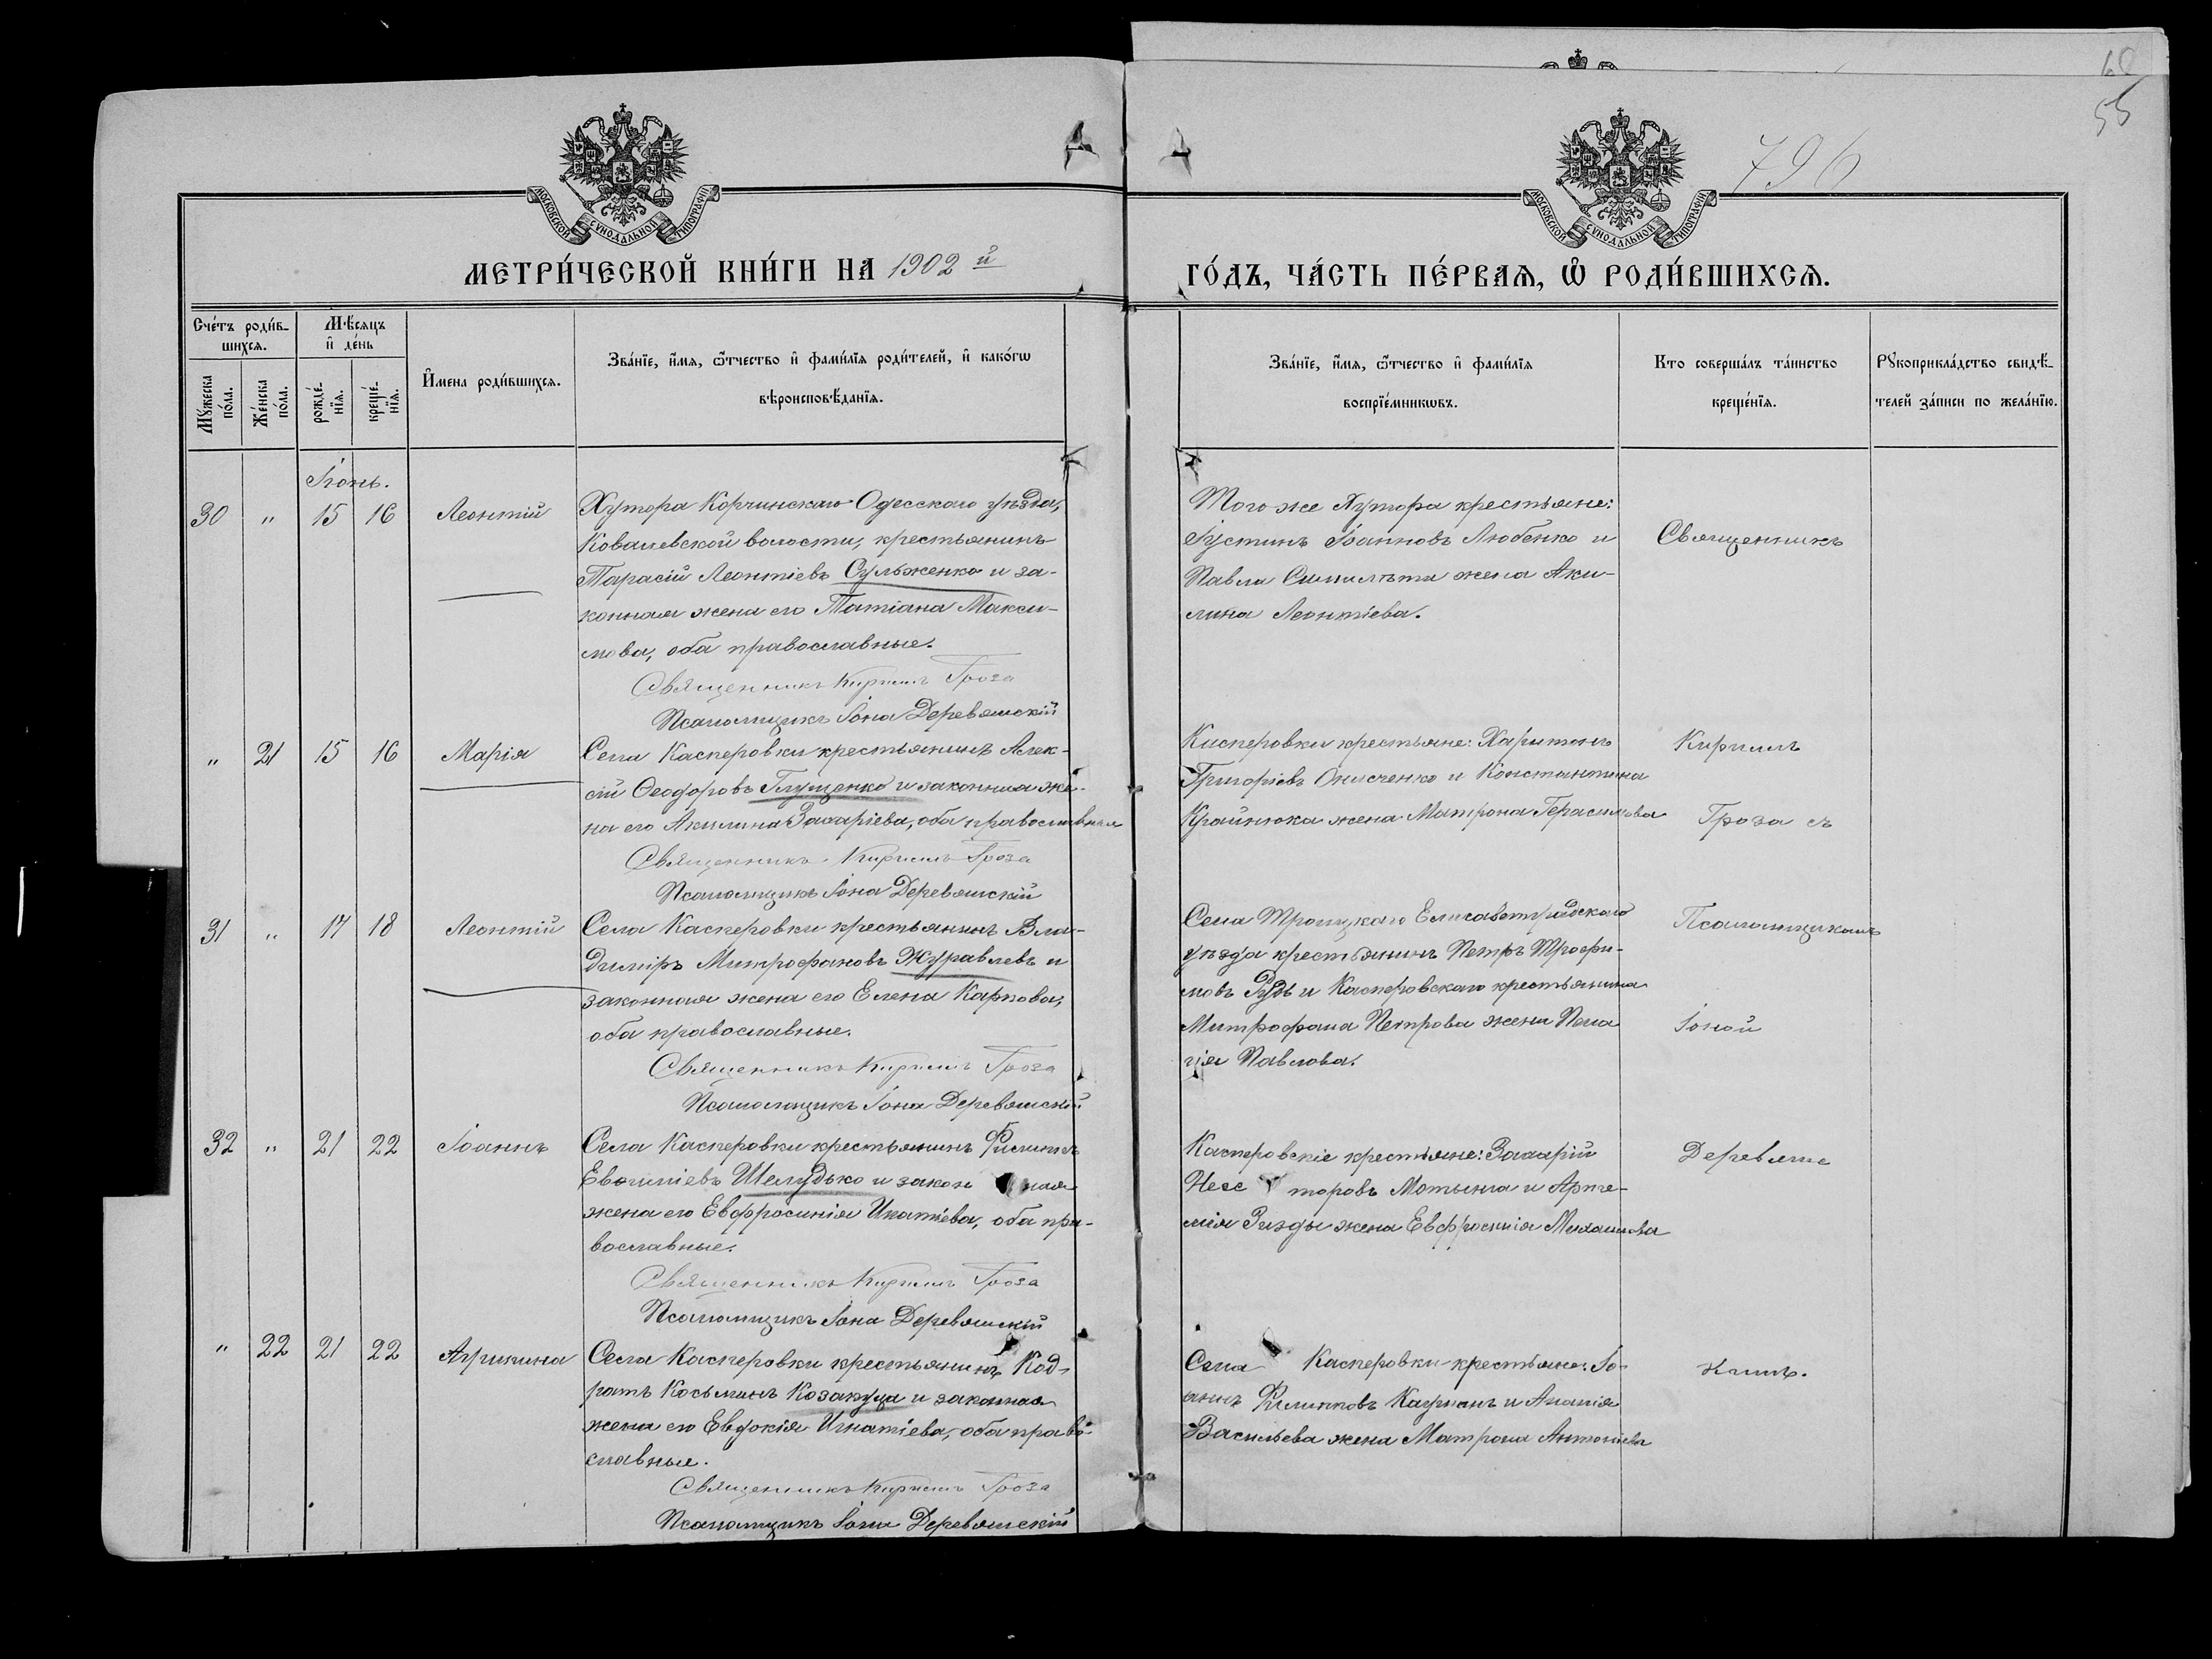 60
55
796
МОСКОВСКОЙ СѴНОДАЛЬНОЙ ТИПОГРАФІИ
МОСКОВСКОЙ СѴНОДАЛЬНОЙ ТИПОГРАФІИ
МЕТРИ́ЧЕСКОЙ КНИ́ГИ НА 1902 й
ГО́ДЪ, ЧА́СТЬ ПЕ́РВАѦ, Ѽ РОДИ́ВШИХСѦ.
Сче́тъ роди́в-
шихсѧ.
Мꙋ́жеска по́ла.
Же́нска по́ла.
Мѣ́сѧцъ
и҆ де́нь
рожде́-
нїѧ.
креще́-
нїѧ.
И҆мена роди́вшихсѧ.
Зва́нїе, и҆́мѧ, ѻ҆́тчество и҆ фами́лїѧ роди́телей, и҆ како́гѡ
вѣроисповѣ́данїѧ.
Зва́нїе, и҆́мѧ, ѻ҆́тчество и҆ фами́лїѧ
воспрїе́мникѡвъ.
Кто соверша́лъ та́инство
креще́нїѧ.
Рꙋкоприкла́дство свидѣ́-
телей за́писи по жела́нїю.
Іюнь.
30 " 15 16 Леонтій
Хутора Корчинскаго Одесскаго уѣзда,
Ковалевской волости, крестьянинъ
Тарасій Леонтіевъ Сульженко и за-
конная жена его Татіана Макси-
мова, оба православные.
Священникъ Кириллъ Гроза
Псаломщикъ Іона Деревянскій
Того же Хутора крестьяне:
Іустинъ Іоанновъ Любенко и
Павла жена Аки-
лина Леонтіева.
Священникъ
" 21 15 16 Марія
Села Касперовки крестьянинъ Алек-
сій Ѳеодоровъ Глущенко и законная же-
на его Акилина Захаріева, оба православныя
Священникъ Кириллъ Гроза
Псаломщикъ Іона Деревянскій
Касперовки крестьяне: Харитонъ
Григоріевъ Онисченко и Константина
Крайнюка жена Матрона Герасимова
Кириллъ
Гроза съ
31 " 17 18 Леонтій
Села Касперовки крестьянинъ Вла-
димiръ Митрофановъ Журавлевъ и
законная жена его Елена Карпова,
оба православные.
Священникъ Кириллъ Гроза
Псаломщикъ Іона Деревянскій
Села Троицкаго Елисаветградскаго
уѣзда крестьянинъ Петръ Трофи-
мовъ Рудь и Касперовскаго крестьянина
Митрофана Петрова жена Пела
гія Павлова.
Псаломщикомъ
Іоной
32 " 21 22 Іоаннъ
Села Касперовки крестьянинъ Филиппъ
Шелудько и закон ная
жена его Евфросинія Игнатіева, оба пра-
вославные.
Священникъ Кириллъ Гроза
Псаломщикъ Іона Деревянскій
Касперовскіе крестьяне: Захарій
Нес торовъ и Арте-
мія Гизды жена Евфросинія Михаилова
Деревянс
" 22 21 22 Агрипина
Села Касперовки крестьянинъ Код-
ратъ Косьминъ Козакуца и законная
жена его Евдокія Игнатіева, оба право-
славные.
Священникъ Кириллъ Гроза
Псаломщикъ Іона Деревянскій
Села Касперовки крестьяне: Іо-
аннъ Филипповъ и Ананія
Васильева жена Матрона Антоніева
кимъ.